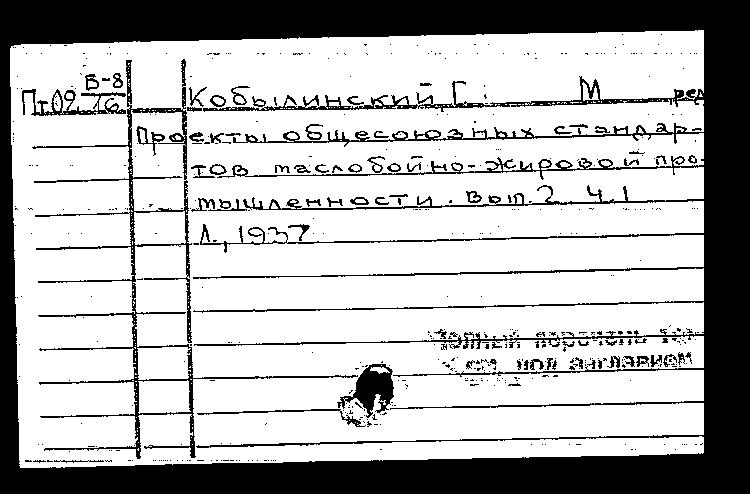 В-8
Пт09 16
Кобылинский, Г. М ред
Проекты общесоюзных стандар-
тов маслобойно-жировой про-
мышленности. Вып. 2 Ч. 1
Л., 1937
Полный перечень
см. под заглавием